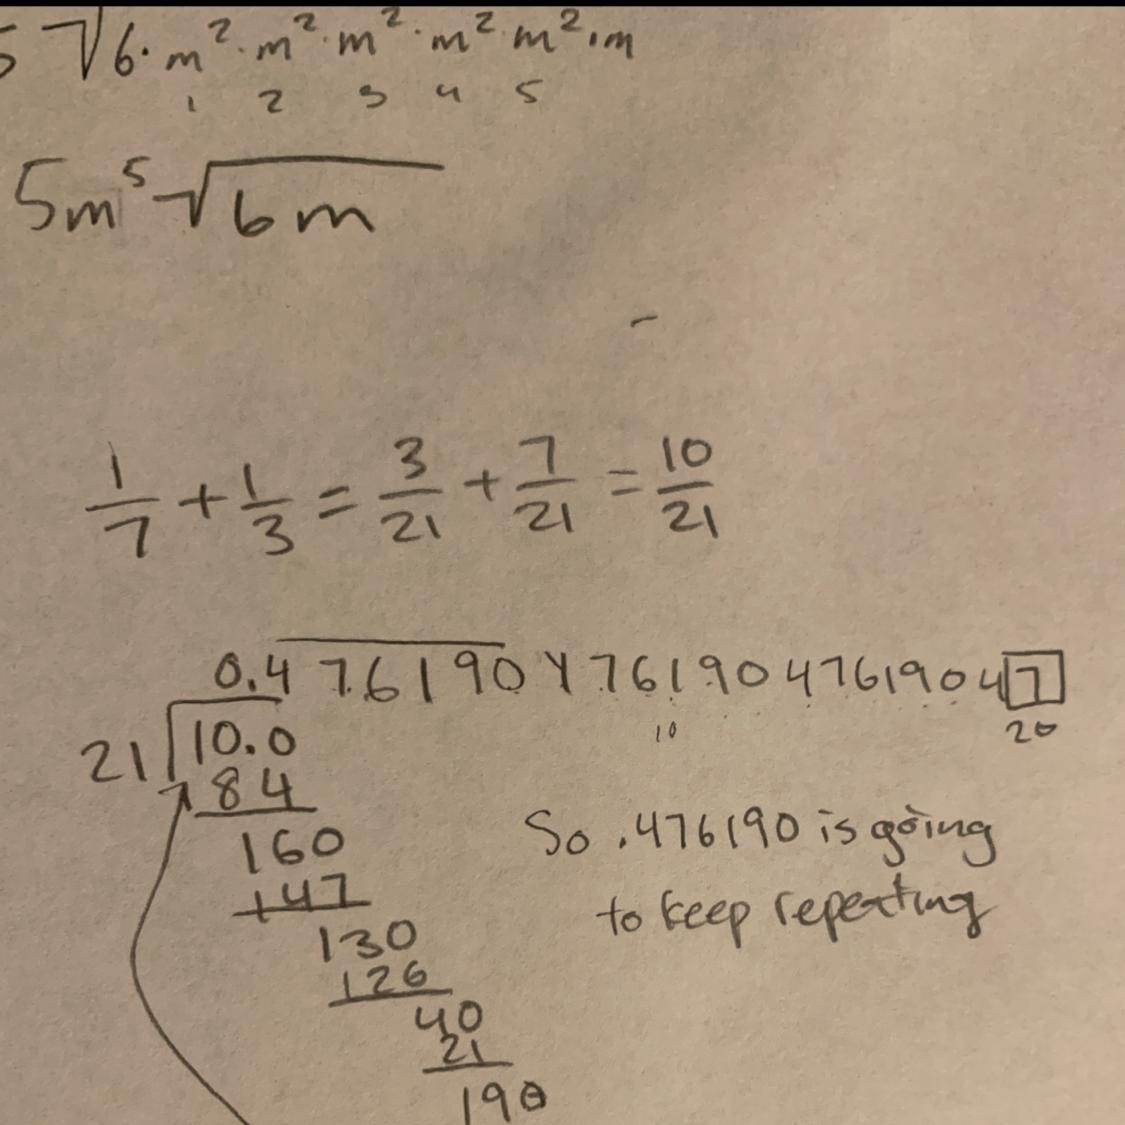 5 √6· m² · m² · m² · m² · m² · m
1 2 3 4 5
5m⁵ √6m
1/7 + 1/3 = 3/21 + 7/21 = 10/21
0.47619047619047619047
10 20
21 10.0
84
160
147
130
126
40
21
190
So .476190 is going
to keep repeating